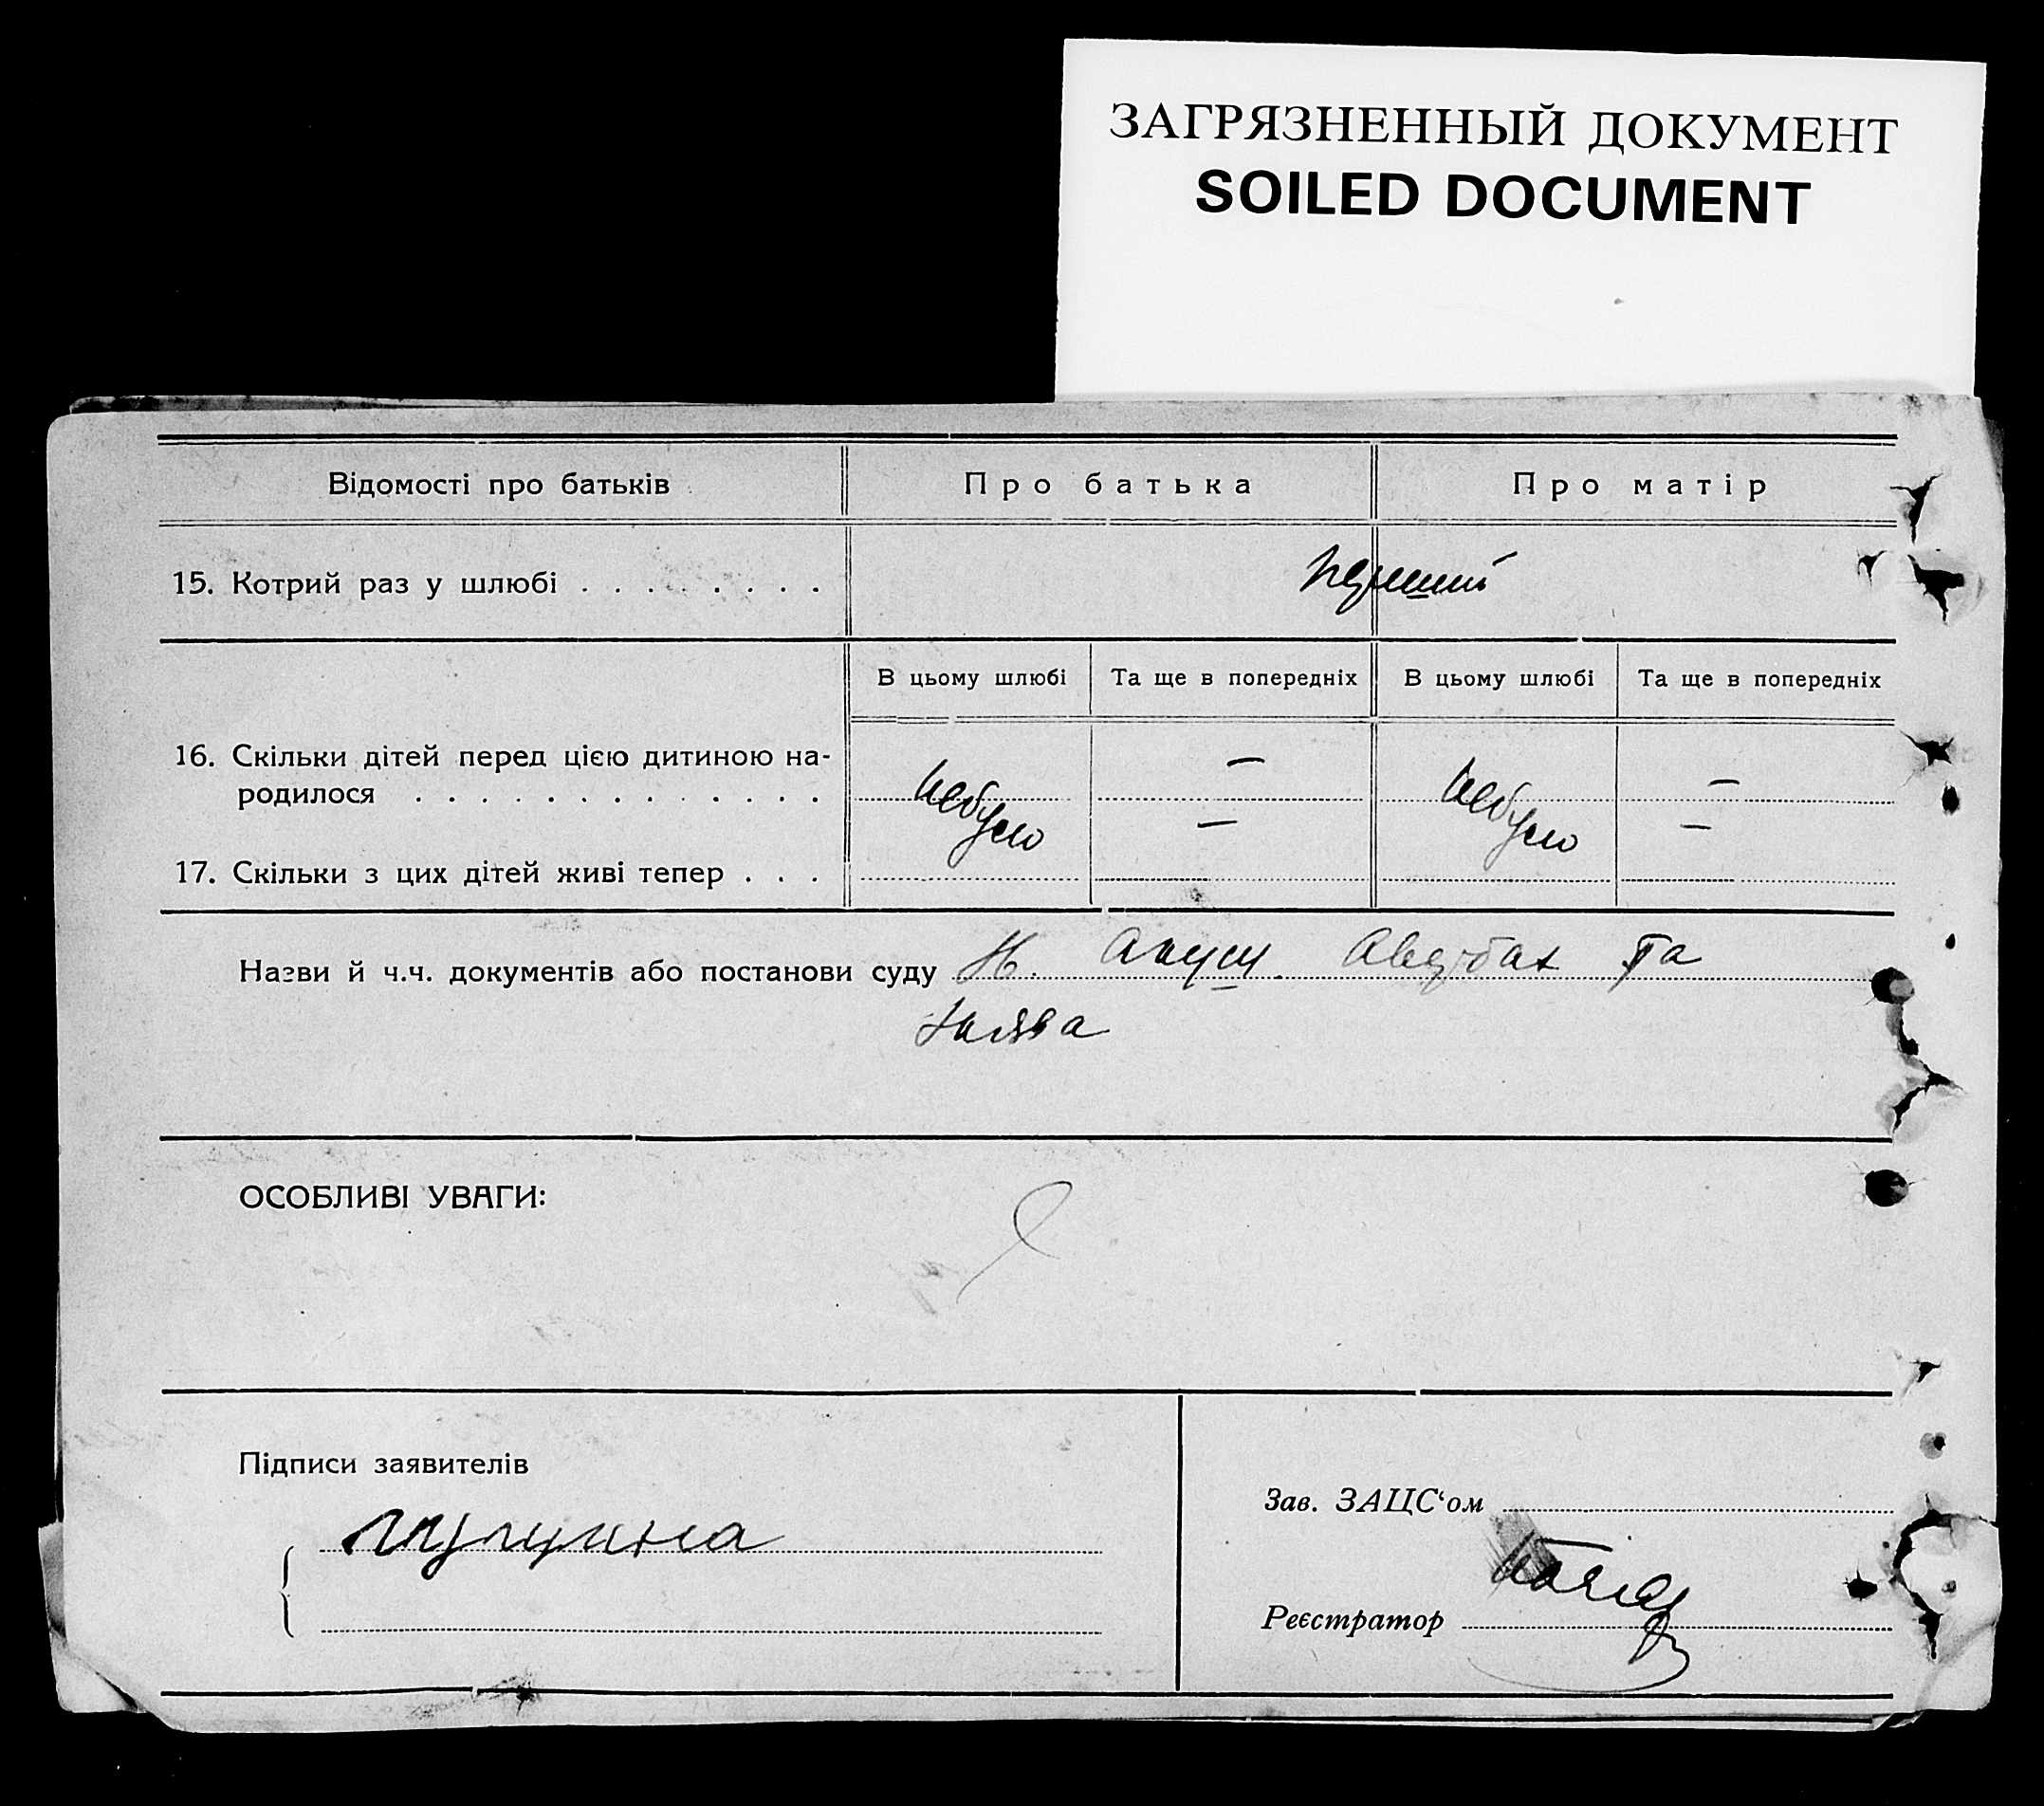 ЗАГРЯЗНЕННЫЙ ДОКУМЕНТ
SOILED DOCUMENT
Відомості про батьків
Про батька
Про матір
15. Котрий раз у шлюбі . . . . . . . .
перший
В цьому шлюбі
Та ще в попередніх
В цьому шлюбі
Та ще в попередніх
16. Скільки дітей перед цією дитиною на-
родилося . . . . . . . . . . . . .
небуло
—
небуло
—
17. Скільки з цих дітей живі тепер . . .
—
—
Назви й ч.ч. документів або постанови суду Н. Акуш. та
ОСОБЛИВІ УВАГИ:
Підписи заявителів
Зав. ЗАЦС‘ом
Реєстратор